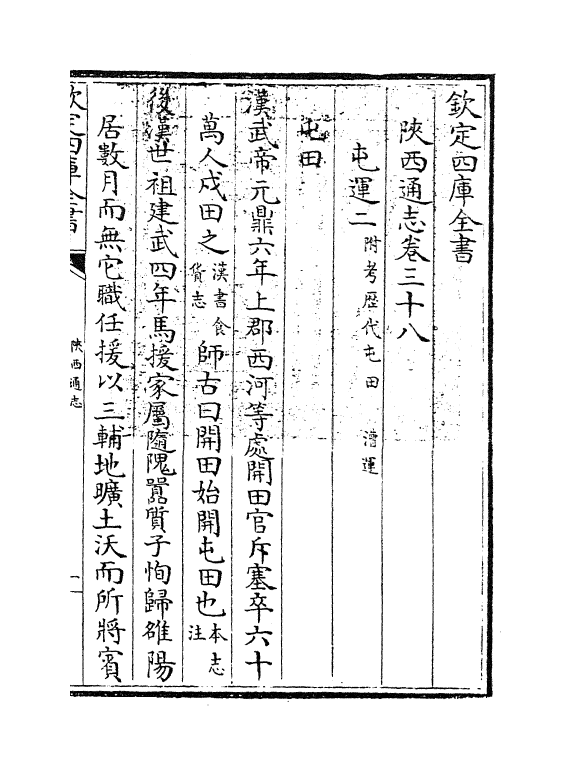 欽定四庫全書
陜西通志卷三十八
屯運二附考歷代屯田 漕運
屯田
漢武帝元鼎六年上郡西河等處開田官斥塞卒六十
萬人戍田之漢書食貨志師古曰開田始開屯田也本志注
後漢世祖建武四年馬援家屬隨隗囂質子恂歸雒陽
居數月而無它職任援以三輔地曠土沃而所將賓
欽定四庫全書
陜西通志
一